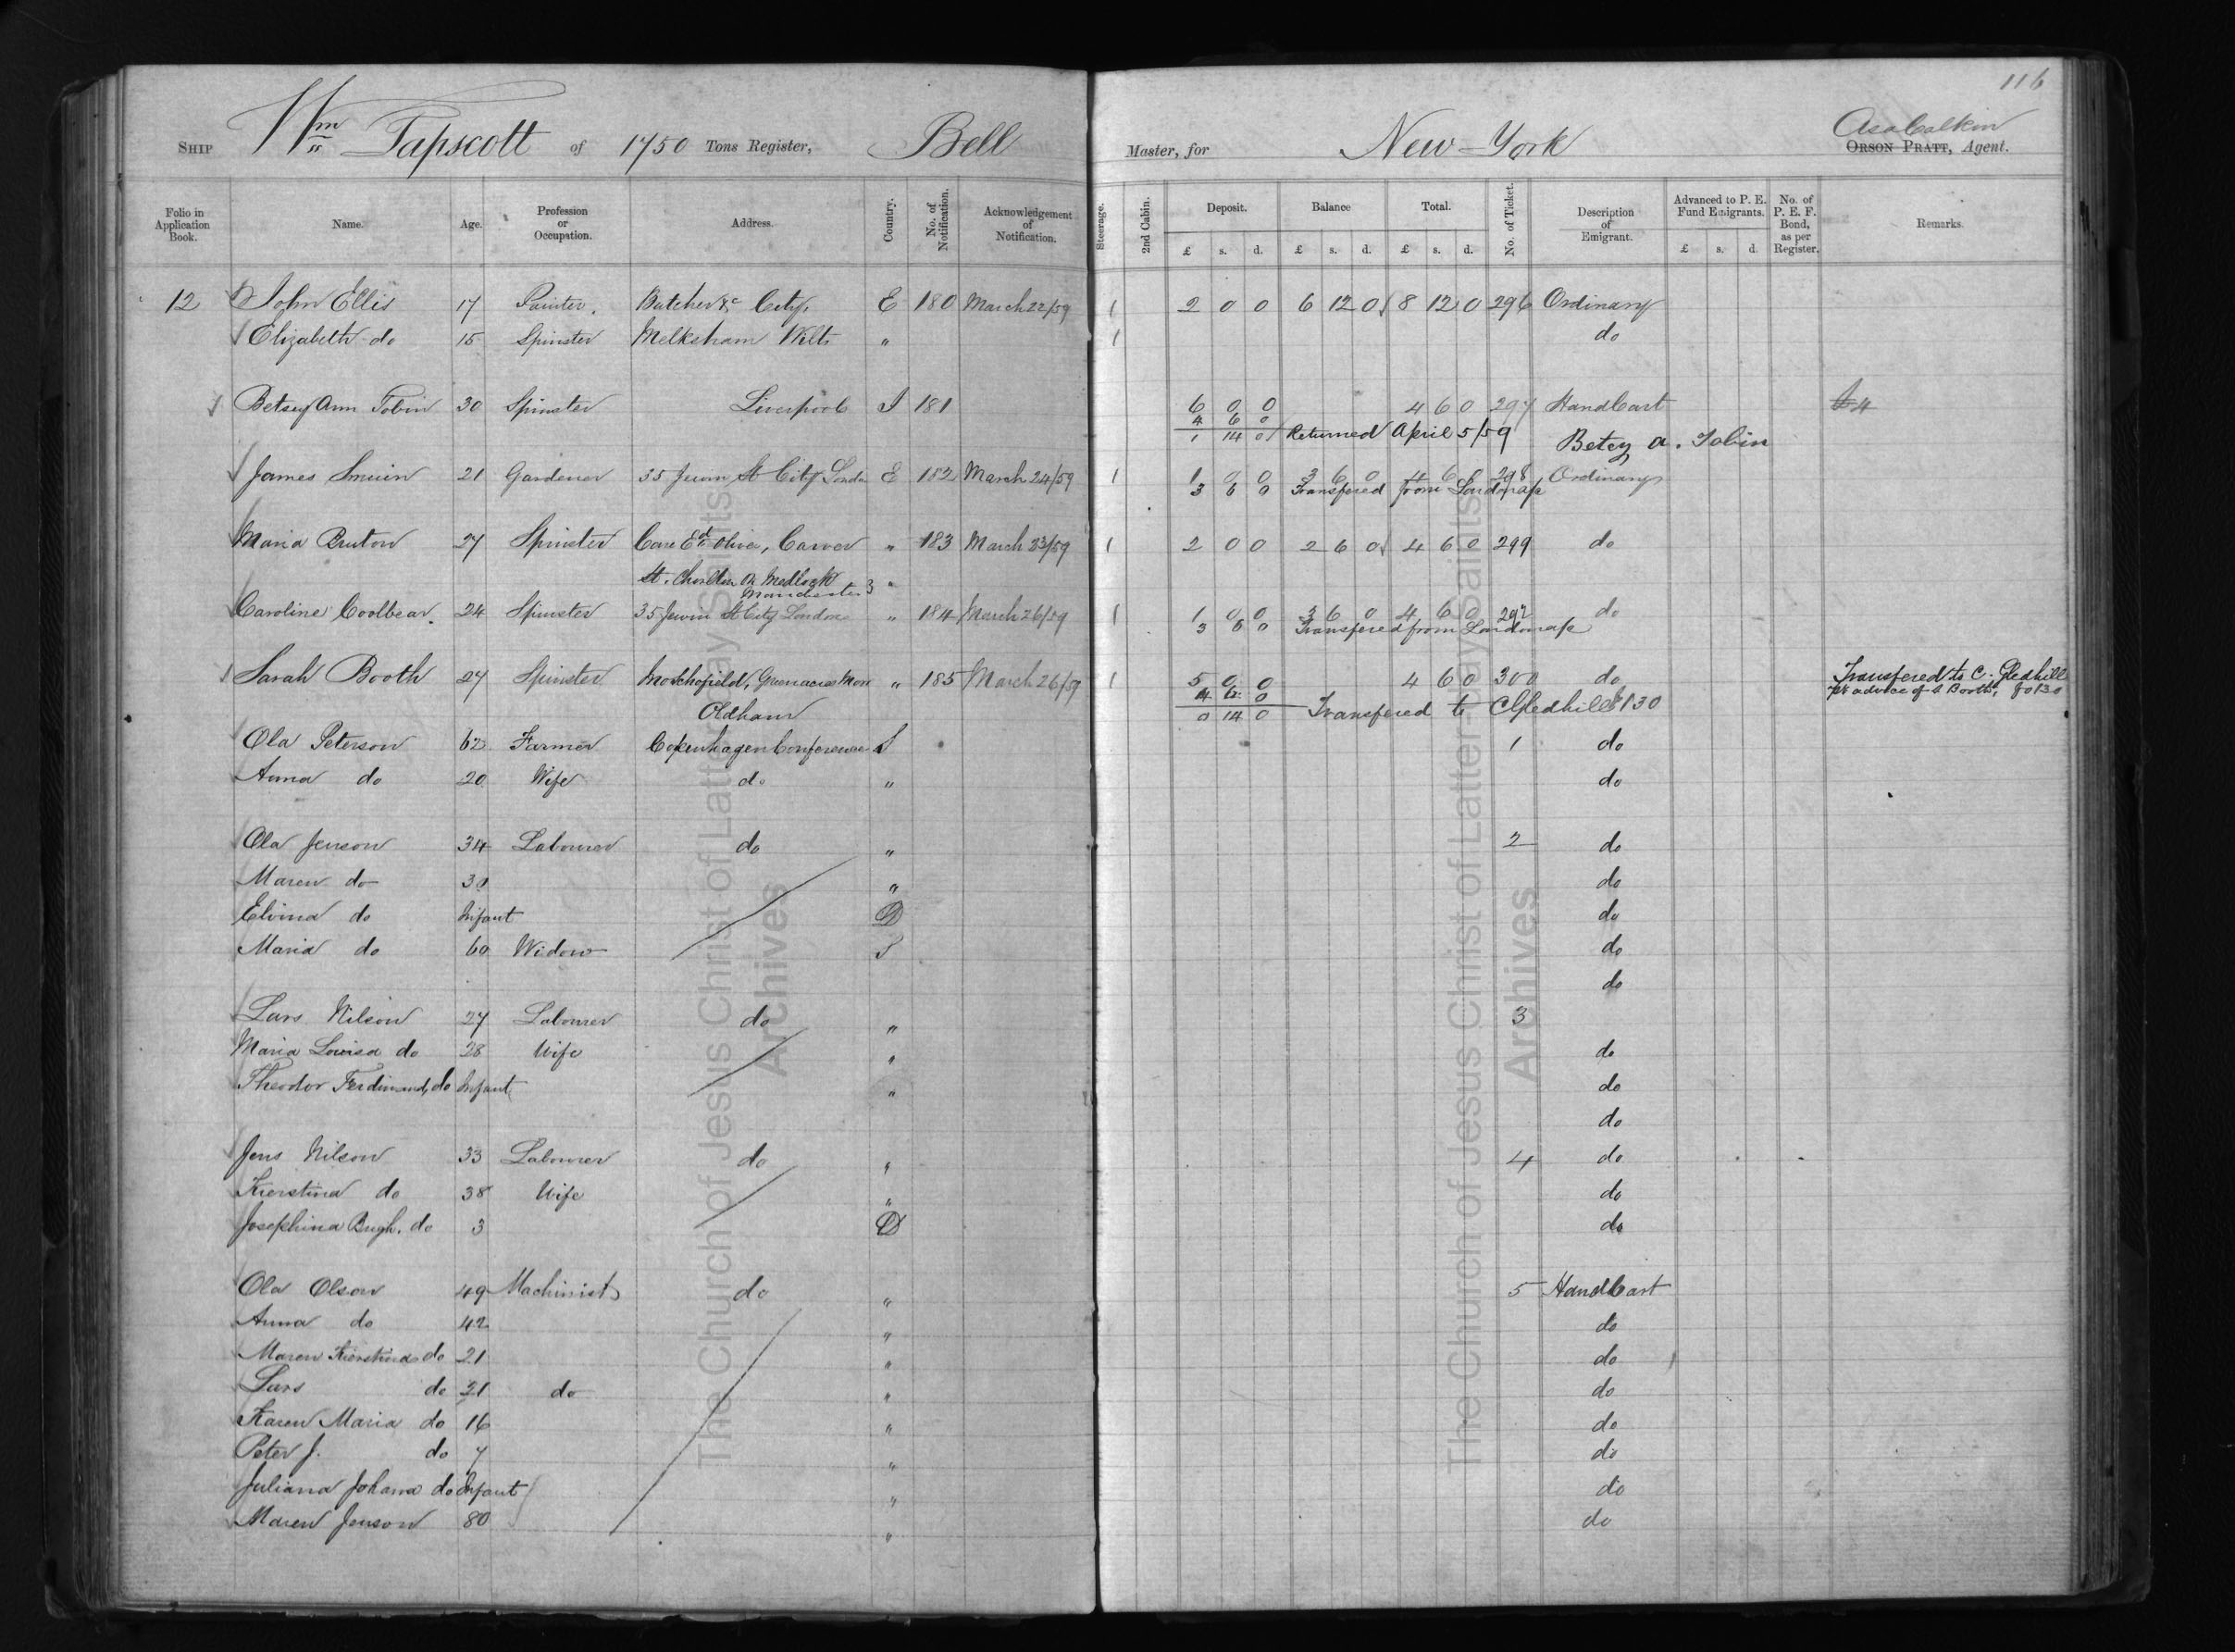 116
Ship Wm Tapscott of 1750 Tons Register, Bell Master, for New-York Asa Calkin
Orson Pratt, Agent.
Folio in Application Book. Name. Age. Profession or Occupation. Address. Country. No. of Notification. Acknowledgement of Notification. Steerage. 2nd Cabin. Deposit. Balance Total. No. of Ticket. Description of Emigrant. Advanced to P. E. Fund Emigrants. No. of P. E. F. Bond, as per Register. Remarks.
£ s. d. £ s. d. £ s. d. £ s. d.
12 John Ellis 17 Painter. Butcher &c City, E 180 March 22/59 1 2 0 0 6 12 0 8 12 0 296 Ordinary
Elizabeth do 15 Spinster Melksham Wilts " 1 do
Betsey Ann Tobin 30 Spinster Liverpool I 181 6 0 0 4 6 0 297 HandCart
4 6 0
1 14 0 Returned April 5/59 Betsy a. Tobin
James Smuin 21 Gardener 35 Jewin St City London E 182 March 24/59 1 1 0 0 3 6 0 4 6 0 298 Ordinary
3 6 0 Transfered from
Maria Bruton 27 Spinster Care Ed Olive, Carver " 183 March 23/59 1 2 0 0 2 6 0 4 6 0 299 do
St. Chorlton on Medlock
Manchester 3 "
Caroline Coolbear. 24 Spinster 35 Jewin St City London " 184 March 26/59 1 1 0 0 3 6 0 4 6 0 292 do
3 6 0 Transfered from
Sarah Booth 27 Spinster Greenacres Moor " 185 March 26/59 1 5 0 0 4 6 0 300 do Transfered to C. Gledhill
4 6 0 pr advice of Booth, fo 130
Oldham 0 14 0 Transfered to C Gledhill 130
Ola Peterson 62 Farmer Copenhagen Conference S 1 do
Anna do 20 Wife do " do
Ola Jenson 34 Labourer do " 2 do
Maren do 30 " do
Elvina do Infant D do
Maria do 60 Widow S do
do
Lars Nilson 27 Labourer do " 3
Maria Louisa do 28 Wife " do
Theodor Ferdinand, do Infant " do
do
Jens Nilson 33 Labourer do " 4 do
Kierstina do 38 Wife " do
Josephina Bugh. do 3 D do
Ola Olson 49 Machinist do " 5 HandCart
Anna do 42 " do
Maren Kierstina do 21 " do
Lars do 21 do " do
Karen Maria do 16 " do
Peter J. do 7 " do
Juliana Johana do Infant " do
Maren Jenson 80 " do
The Church of Jesus Christ of Latter-day Saints
Archives
The Church of Jesus Christ of Latter-day Saints
Archives